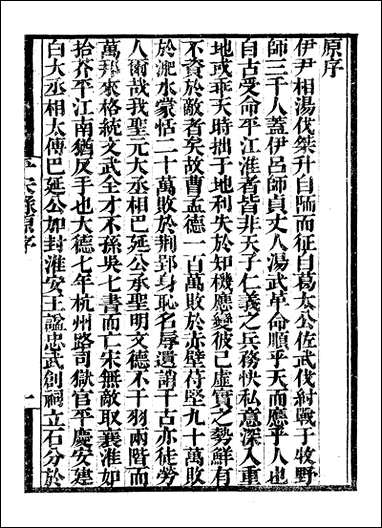 原序
伊尹相湯伐桀升自陑而征自葛太公佐武伐紂戰于牧野
師三千人蓋伊呂師貞丈人湯武革命順乎天而應乎人也
自古受命平江淮者皆非天子仁義之兵務快私意深入重
地或乖天時拙于地利失於知機應變彼己虛實之勢鮮有
不資於敵者矣故曹孟德一百萬敗於赤壁苻堅九十萬敗
於淝水蒙恬二十萬敗於荆郢身恥名辱遺誚千古亦徒勞
人爾哉我聖元大丞相巴延公承聖明文德不干羽兩階而
萬邦來格統文武全才不孫吳七書而亡宋無敵取襄淮如
拾芥平江南猶反手也大德七年杭州路司獄官平慶安建
白大丞相太傅巴延公加封淮安王諡忠武創祠立石分於
平宋錄原序
一